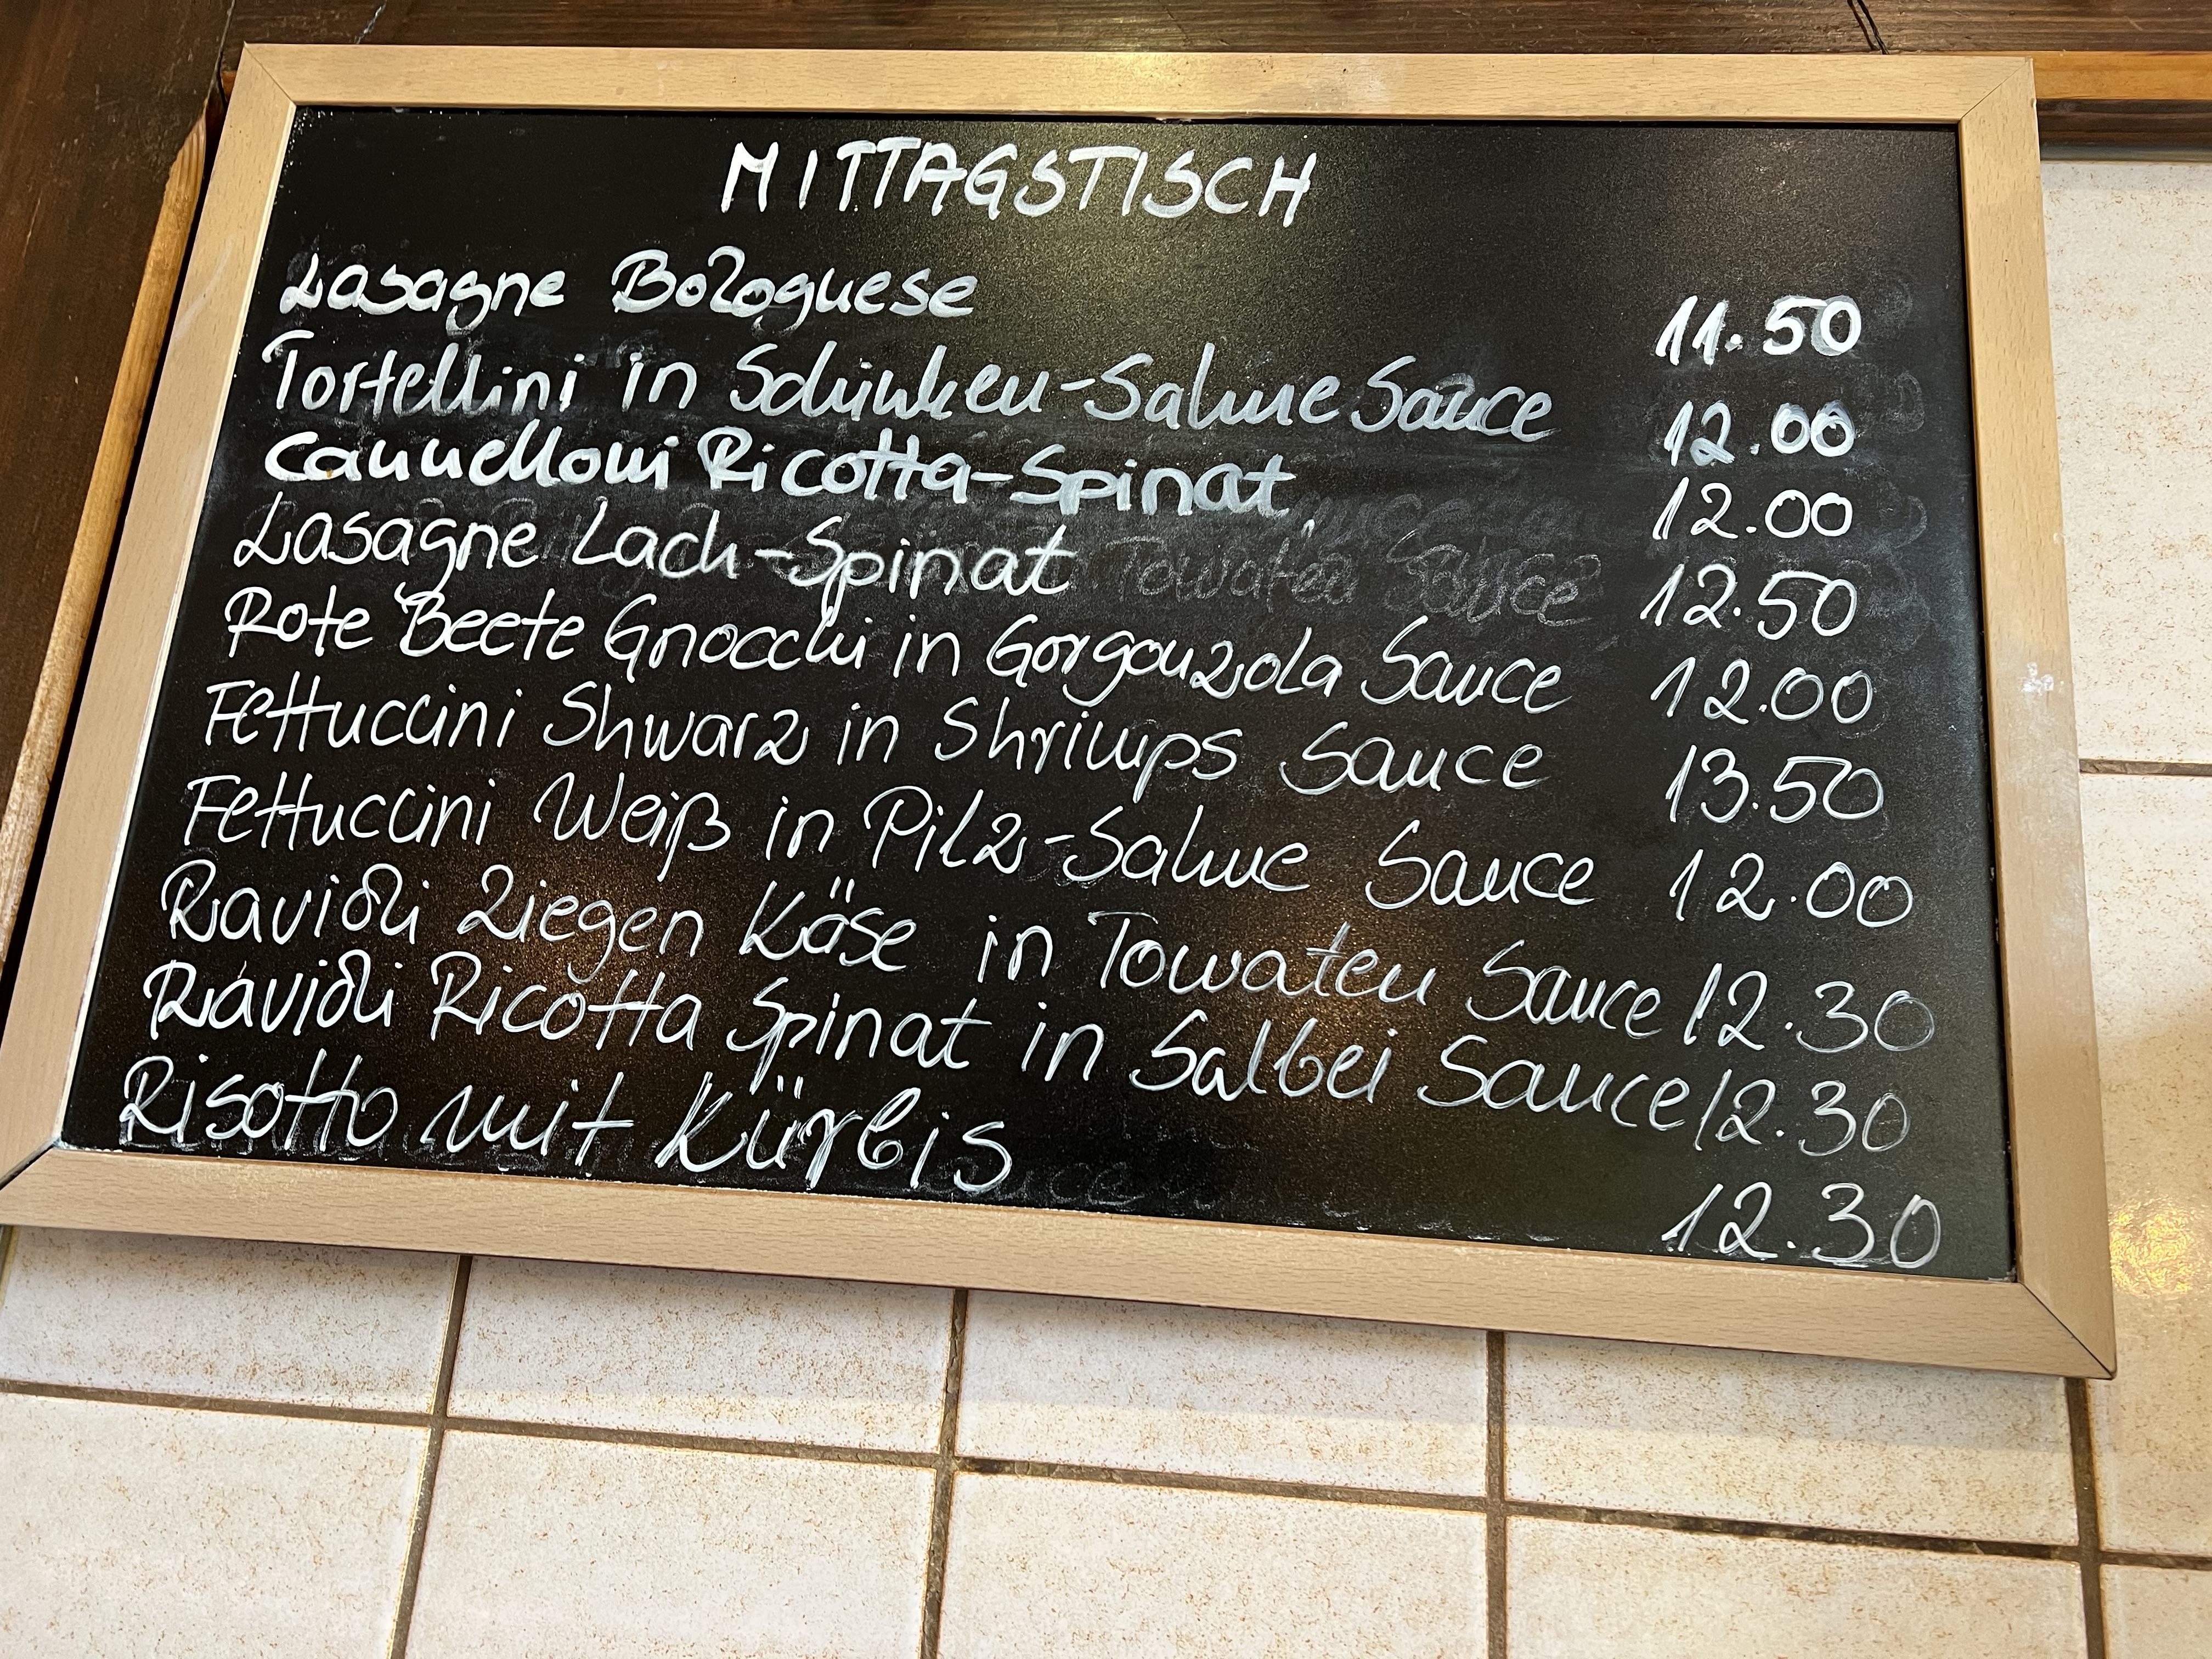 MITTAGSTISCH
Lasagne Bolognese 11.50
Tortellini in Schinken-Sahne Sauce 12.00
Cannelloni Ricotta-Spinat 12.00
Lasagne Lach-Spinat 12.50
Rote Beete Gnocchi in Gorgonzola Sauce 12.00
Fettuccini Shwarz in Shrimps Sauce 13.50
Fettuccini Weiß in Pilz-Sahne Sauce 12.00
Ravioli Ziegen Käse in Tomaten Sauce 12.30
Ravioli Ricotta Spinat in Salbei Sauce 12.30
Risotto mit Kürbis 12.30